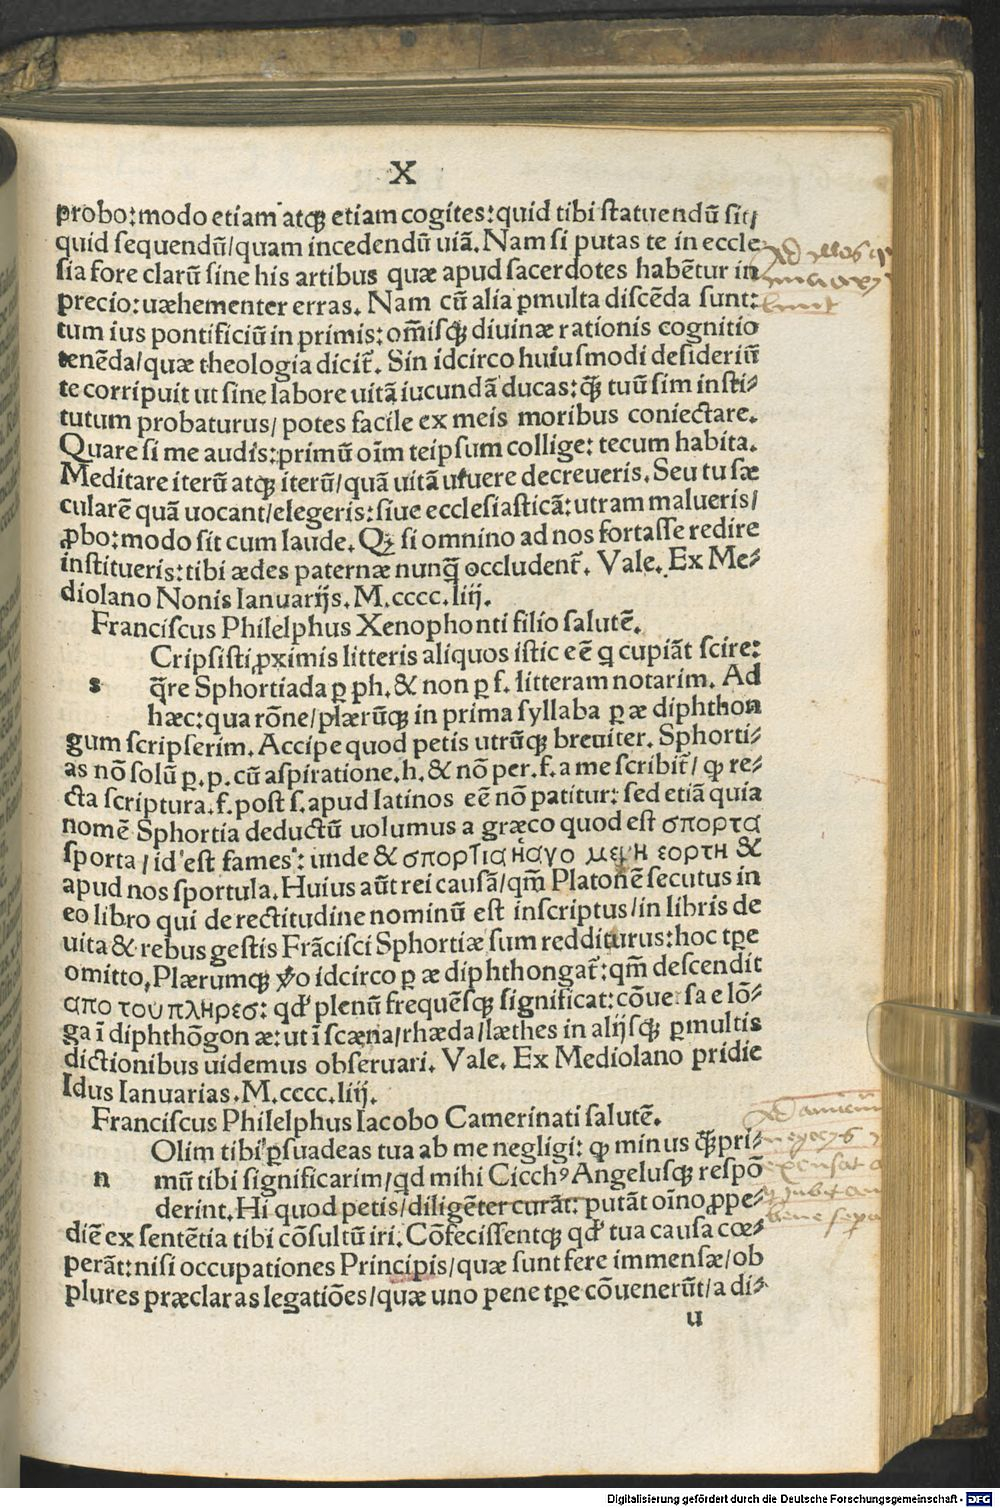 X
probo:modo etiam atqꝫ etiam cogites:quid tibi statuendū sit/
quid sequendū/quam incedendū uiā. Nam si putas te in eccle
sia fore clarū sine his artibus quæ apud sacerdotes habētur in
precio:uæhementer erras. Nam cū alia ꝑmulta discēda sunt:
tum ius pontificiū in primis:om̄isqꝫ diuinæ rationis cognitio
tenēda/quæ theologia dicit̄. Sin idcirco huiusmodi desideriū
te corripuit ut sine labore uitā iucundā ducas:q̄ꝫ tuū sim insti⸗
tutum probaturus/ potes facile ex meis moribus coniectare.
Quare si me audis:primū oīm teipsum collige: tecum habita.
Meditare iterū atqꝫ iterū/quā uitā uiuere decreueris. Seu tu sæ
cularē quā uocant/elegeris:siue ecclesiasticā:utram malueris/
ꝓbo:modo sit cum laude. Qꝫ si omnino ad nos fortasse redire
institueris:tibi ædes paternæ nunq̄ occludent̄. Vale. Ex Me⸗
diolano Nonis Ianuarijs. M.cccc.liij.
Franciscus Philelphus Xenophonti filio salutē.
Cripsisti ꝓximis litteris aliquos istic eē q cupiāt scire:
s q̄re Sphortiada ꝑ ph. & non ꝑ f. litteram notarim. Ad
hæc:qua rōne/plærūqꝫ in prima syllaba ꝑ æ diphthon
gum scripserim. Accipe quod petis utrūqꝫ breuiter. Sphorti⸗
as nō solū ꝑ.p.cū aspiratione.h.& nō per.f.a me scribit̄/ ꝙ re⸗
cta scriptura.f.post s.apud latinos eē nō patitur: sed etiā quia
nomē Sphortia deductū uolumus a græco quod est σπορτα
sporta/id est fames: unde & σπορτια &
apud nos sportula. Huius aūt rei causā/qm̄ Platonē secutus in
eo libro qui de rectitudine nominū est inscriptus/in libris de
uita & rebus gestis Frācisci Sphortiæ sum redditurus:hoc tꝑe
omitto. Plærumqꝫ ꝟo idcirco ꝑ æ diphthongat̄:qm̄ descendit
απο του πληρεσ: qd' plenū frequēsqꝫ significat:cōuersa e lō⸗
ga ī diphthōgon æ:ut ī scæna/rhæda/læthes in alijsqꝫ ꝑmultis
dictionibus uidemus obseruari. Vale. Ex Mediolano pridie
Idus Ianuarias.M.cccc.liij.
Franciscus Philelphus Iacobo Camerinati salutē.
Olim tibi ꝑsuadeas tua ab me negligi: ꝙ minus q̄ꝫ pri⸗
n mū tibi significarim/qd mihi Cicchꝰ Angelusqꝫ respō
derint. Hi quod petis/diligēter curāt: putāt oīno ꝓpe⸗
diē ex sentētia tibi cōsultū iri. Cōfecissentqꝫ qd' tua causa cœ⸗
perāt:nisi occupationes Principis/quæ sunt fere immensæ/ob
plures præclaras legatiōes/quæ uno pene tꝑe cōuenerūt/a di⸗
u
Digitalisierung gefördert durch die Deutsche Forschungsgemeinschaft - DFG